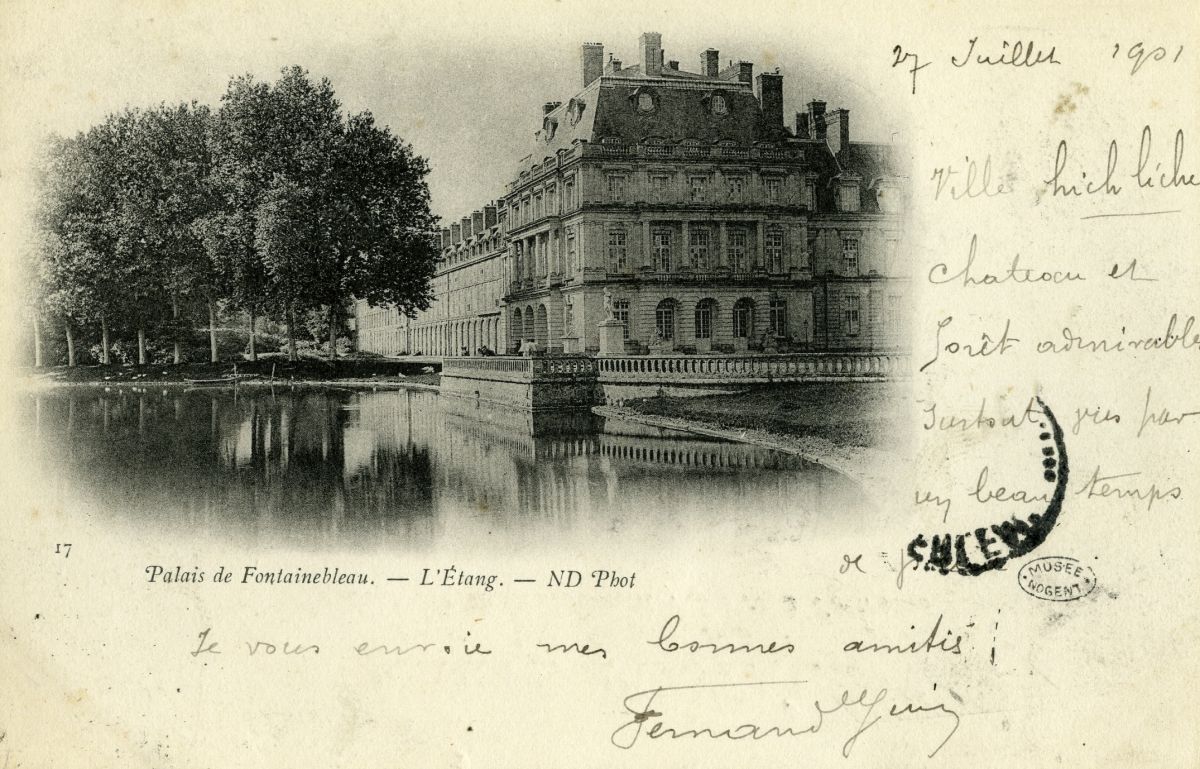 27 Juillet 1901
Ville hich liche
chateau et
Forêt admirable
surtout vus par
un beau temps
de
CHLEW
MUSÉE
NOGENT
17
Palais de Fontainebleau. — L'Étang. — ND Phot
Je vous envoie mes bonnes amitis
Fernand